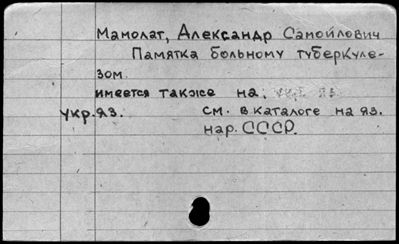 Мамолат, Александр Самойлович
Памятка больному туберкуле-
зом.
имеется также на:
укр.яз. см. в каталоге на яз.
нар. СССР.